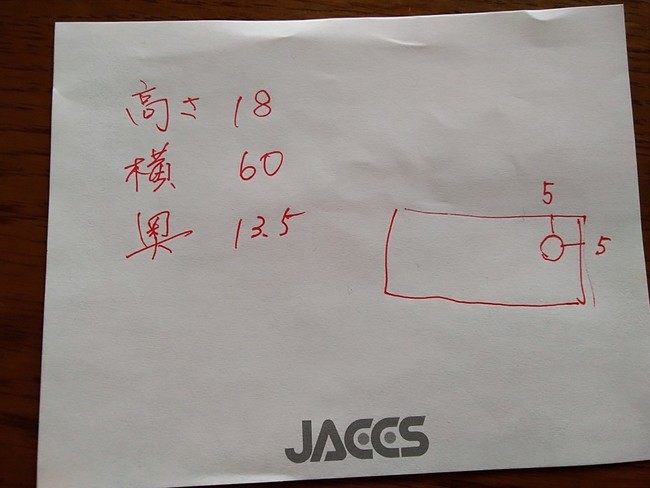 高さ 18
横 60
奥 13.5
5
5
JACCS